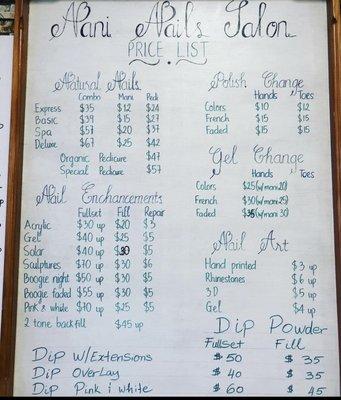 Nani Nails Salon
PRICE LIST
Natural Nails
Combo Mani Pedi
Express $35 $12 $24
Basic $39 $15 $27
Spa $57 $20 $37
Deluxe $67 $25 $42
Organic Pedicure $47
Special Pedicure $57
Nail Enchancements
Fullset Fill Repair
Acrylic $30 up $20 $3
Gel $40 up $25 $5
Solar $40 up $30 $5
Sculptures $70 up $30 $6
Boogie night $50 up $30 $5
Boogie faded $55 up $30 $5
Pink & white $70 up $25 $5
2 tone backfill $45 up
Polish Change
Hands Toes
Colors $10 $12
French $15 $15
Faded $15 $15
Gel Change
Hands Toes
Colors $25 (w/mani 20)
French $30 (w/mani 25)
Faded $35 (w/mani 30)
Nail Art
Hand printed $3 up
Rhinestones $6 up
3D $5 up
Gel $4 up
Dip Powder
Fullset Fill
Dip W/Extensions $50 $35
Dip Overlay $40 $35
Dip Pink & white $60 $45